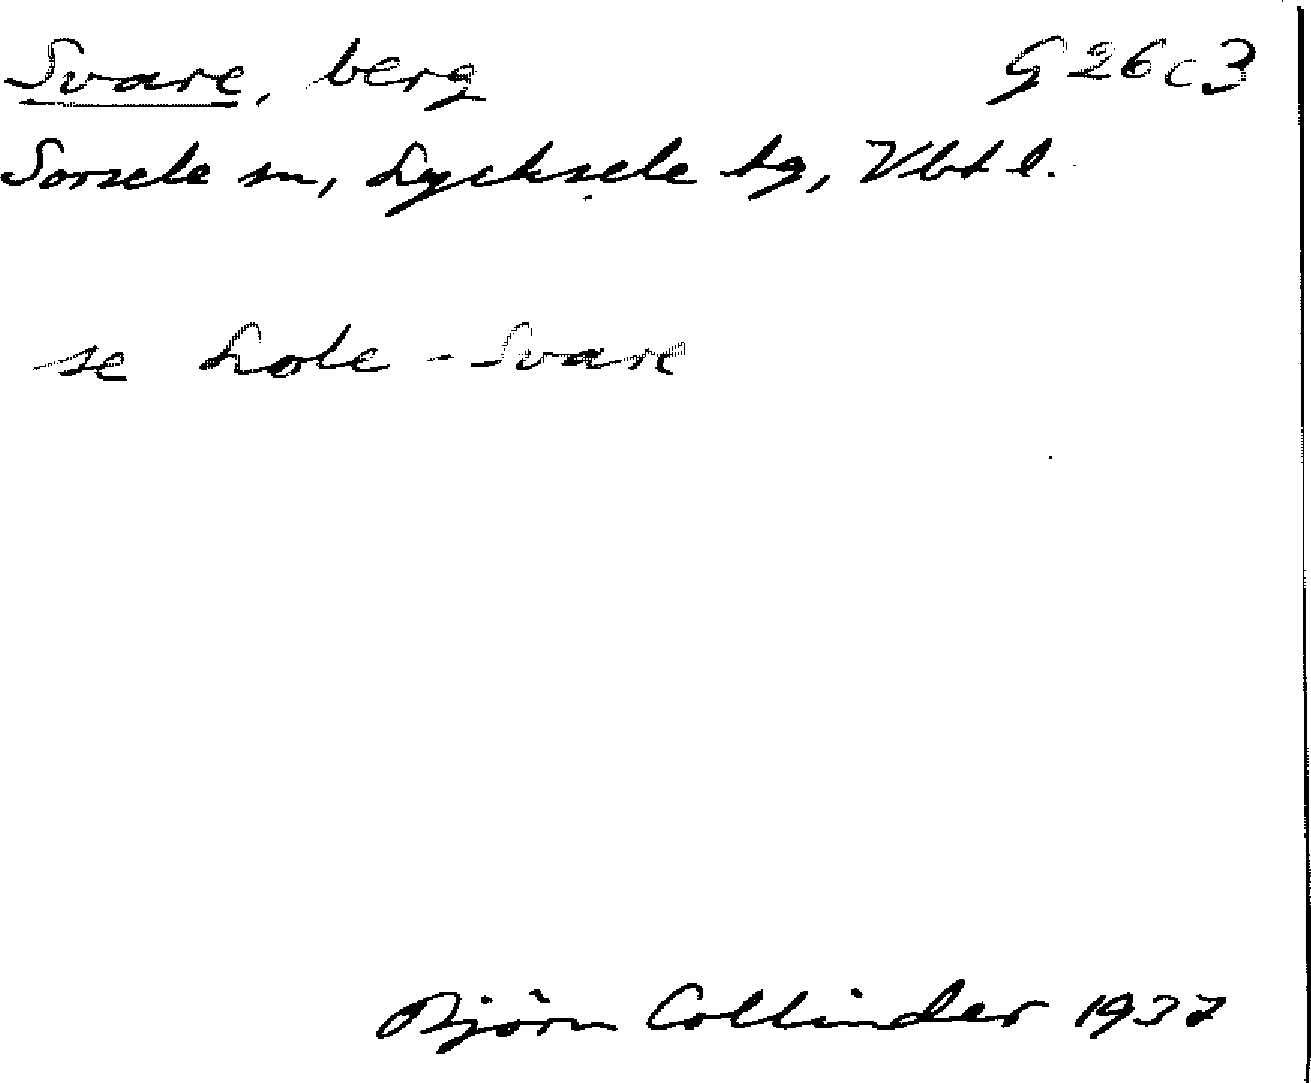 Svare, berg G 26 c 3
Sorsele sn, Lycksele tg, Vbtl.
se Lole - Svare
Björn Collinder 1937